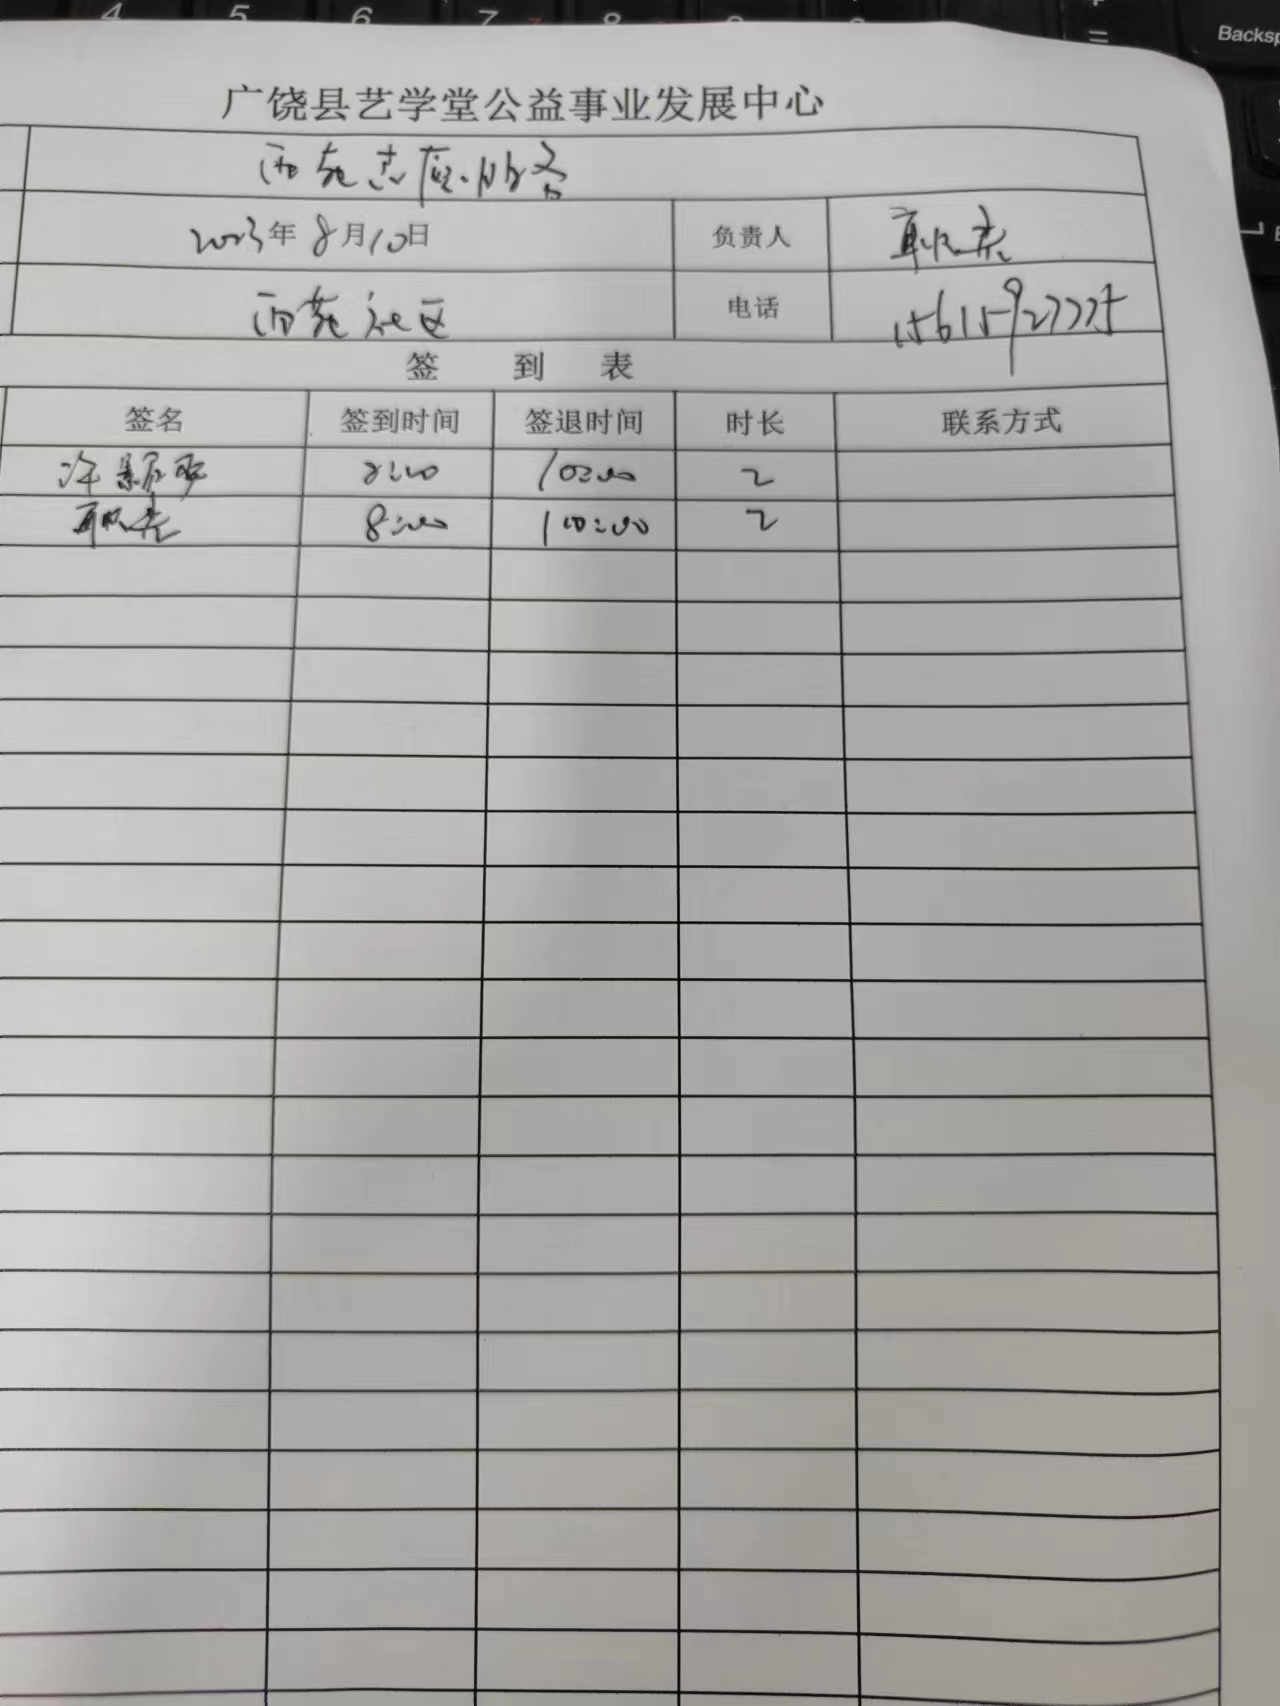 4 5 6 7 8 9
Backsp
广饶县艺学堂公益事业发展中心
西苑志愿服务
2023年8月10日 负责人
西苑社区 电话 15615927775
签 到 表
签名 签到时间 签退时间 时长 联系方式
8:00 10:00 2
8:00 10:00 2